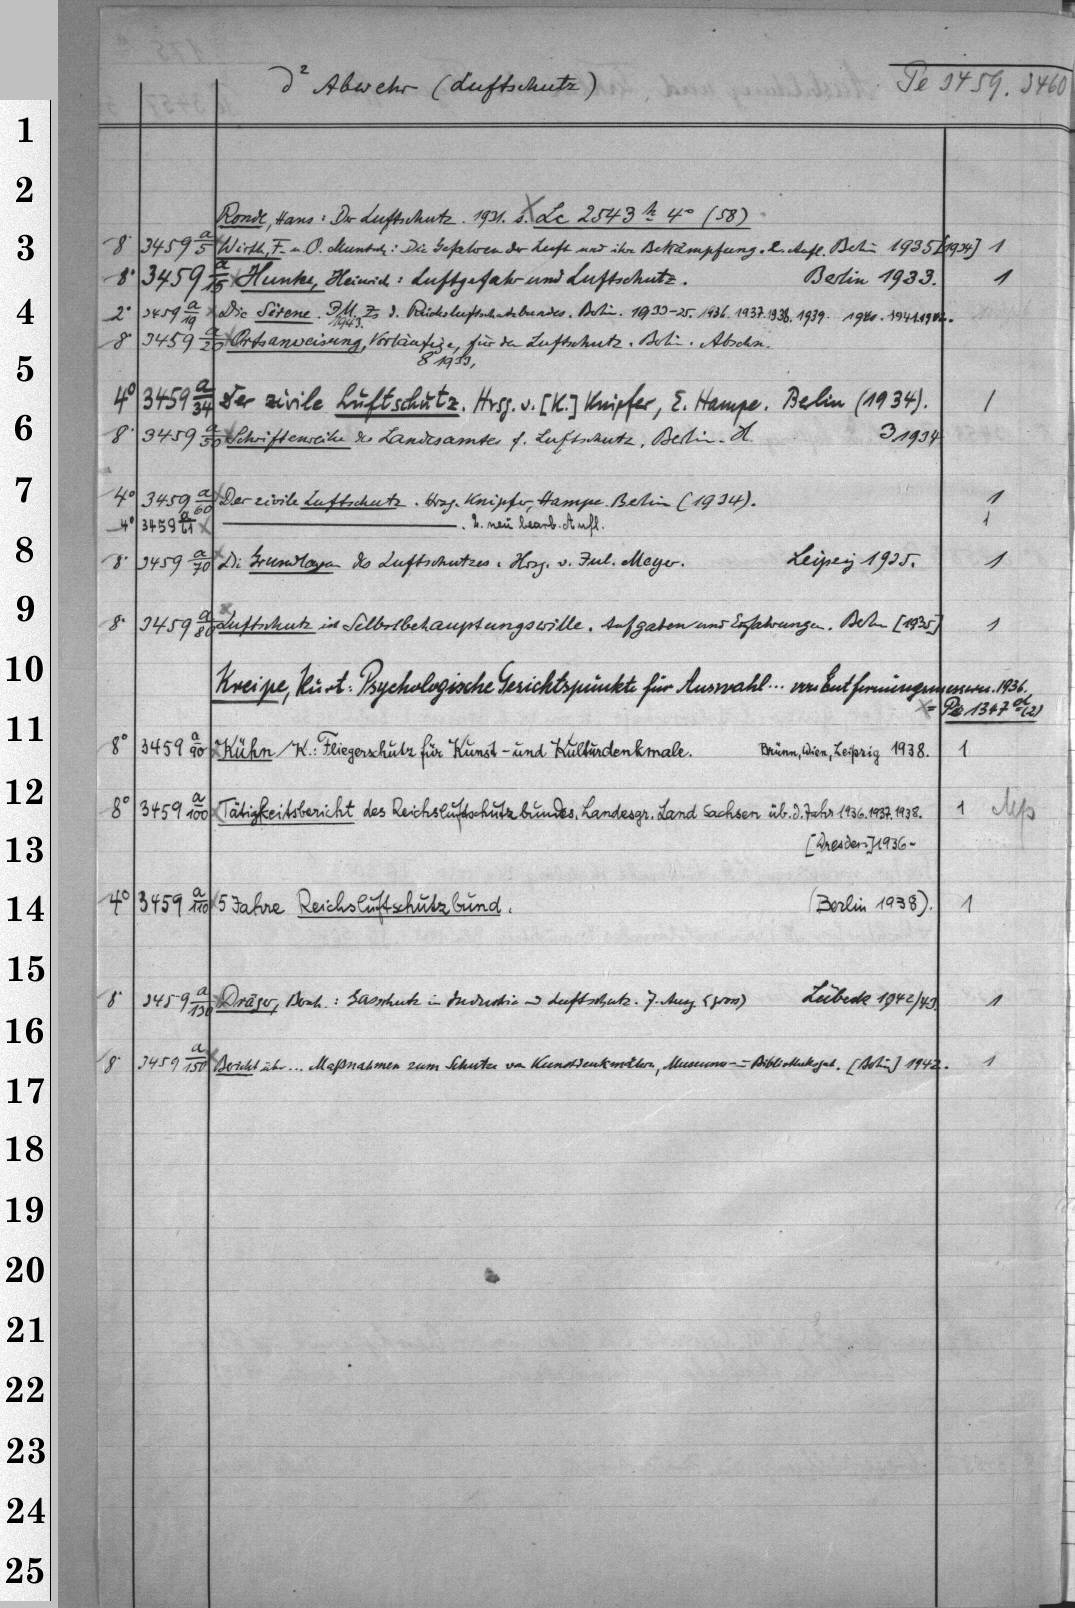 d² Abwehr (Luftschutz) Pe 3459. 3460
1
2
Ronde, Hans: Der Luftschutz. 1931. s. Lc 2543 h 4° (58)
3 8° 3459 a/5 Wirth, F. u. O. Muntsch: Die Gefahren der Luft und ihre Bekämpfung. 2. Aufl. Berlin 1935 [1934] 1
8° 3459 a/15 Hunke, Heinrich: Luftgefahr und Luftschutz. Berlin 1933. 1
4 2° 3459 a/19 Die Sirene. Ill. Zs. d. Reichsluftschutzbundes. Berlin. 1933-35. 1936. 1937. 1938. 1939. 1940. 1941. 1942.
1943.
8° 3459 a/20 Ortsanweisung, Vorläufige, für den Luftschutz. Berlin. Abschn.
5 8 1933,
4° 3459 a/34 Der zivile Luftschutz. Hrsg. v. [K.] Knipfer, E. Hampe. Berlin (1934). 1
6 8° 3459 a/50 Schriftenreihe des Landesamtes f. Luftschutz, Berlin. H. 3 1934
7 4° 3459 a/60 Der zivile Luftschutz. Hrsg. Knipfer, Hampe. Berlin (1934). 1
4° 3459 a/61 . 2. neu bearb. Aufl. 1
8 8° 3459 a/70 Die Grundlagen des Luftschutzes. Hrsg. v. Jul. Meyer. Leipzig 1935. 1
9 8° 3459 a/80 Luftschutz ist Selbstbehauptungswille. Aufgaben und Erfahrungen. Berlin [1935] 1
10 Kreipe, Kurt: Psychologische Gesichtspunkte für Auswahl... von Entfernungsmessern. 1936.
= Pe 1347 (2)
11 8° 3459 a/90 Kühn, K.: Fliegerschutz für Kunst- und Kulturdenkmale. Brünn, Wien, Leipzig 1938. 1
12 8° 3459 a/100 Tätigkeitsbericht des Reichsluftschutzbundes, Landesgr. Land Sachsen üb. d. Jahr 1936. 1937. 1938. 1
13 [Dresden] 1936-
14 4° 3459 a/110 5 Jahre Reichsluftschutzbund. (Berlin 1938). 1
15 8° 3459 a/130 Dräger, Bernh.: Gasschutz in Industrie u. Luftschutz. 7. Ausg. Lübeck 1942/43. 1
16 8° 3459 a/150 Bericht über... Maßnahmen zum Schutze von Kunstdenkmälern, Museums- Bibliotheksgut. [Berlin] 1942. 1
17
18
19
20
21
22
23
24
25